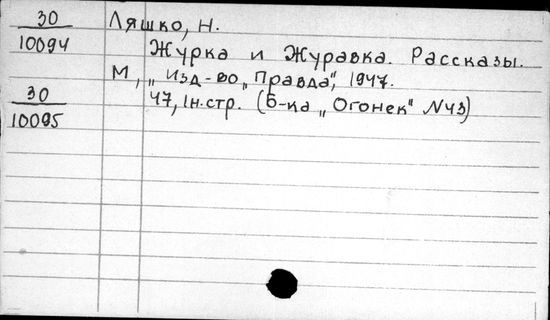 30 Ляшко, Н.
10094 Журка и Журавка. Рассказы.
М, „Изд-во „Правда", 1947.
30 47, 1н.стр. (Б-ка „Огонек" N43)
10095